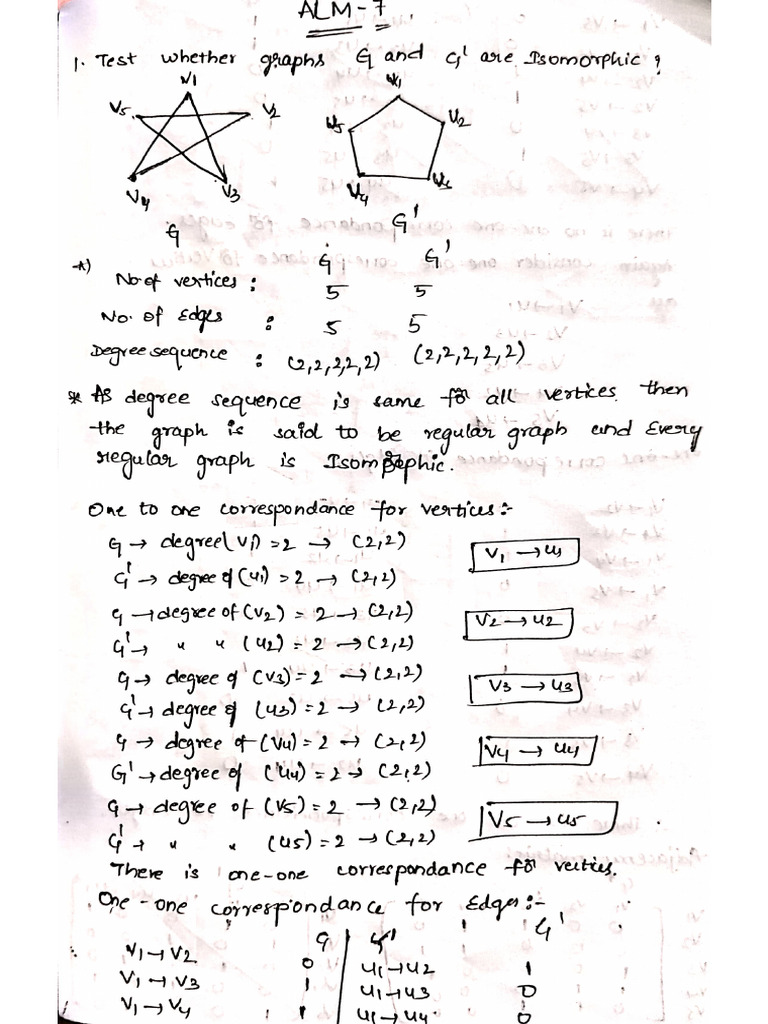 ALM-7
1. Test whether graphs G and G' are Isomorphic?
V1
V5
V2
V4
V3
G
u1
u5
u2
u4
G'
*)
G G'
No of vertices : 5 5
No. of Edges : 5 5
Degree sequence : (2,2,2,2,2) (2,2,2,2,2)
* As degree sequence is same for all vertices then
the graph is said to be regular graph and Every
regular graph is Isomorphic.
One to one correspondance for vertices:-
G → degree(V1) = 2 → (2,2) V1 → u1
G' → degree of (u1) = 2 → (2,2)
G → degree of (V2) = 2 → (2,2) V2 → u2
G' → " " (u2) = 2 → (2,2)
G → degree of (V3) = 2 → (2,2) V3 → u3
G' → degree of (u3) = 2 → (2,2)
G → degree of (V4) = 2 → (2,2) V4 → u4
G' → degree of (u4) = 2 → (2,2)
G → degree of (V5) = 2 → (2,2) V5 → u5
G' → " " (u5) = 2 → (2,2)
There is one-one correspondance for verties.
One-one correspondance for Edges:-
G G' G'
V1 → V2 0 u1 → u2 1
V1 → V3 1 u1 → u3 0
V1 → V4 1 u1 → u4 0